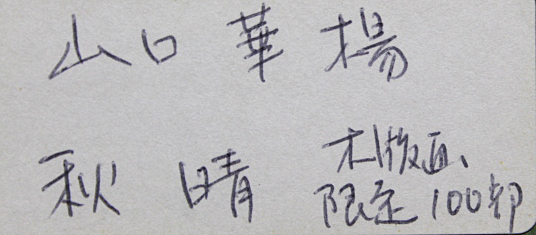 山口華楊
秋晴 木版画、
限定100部